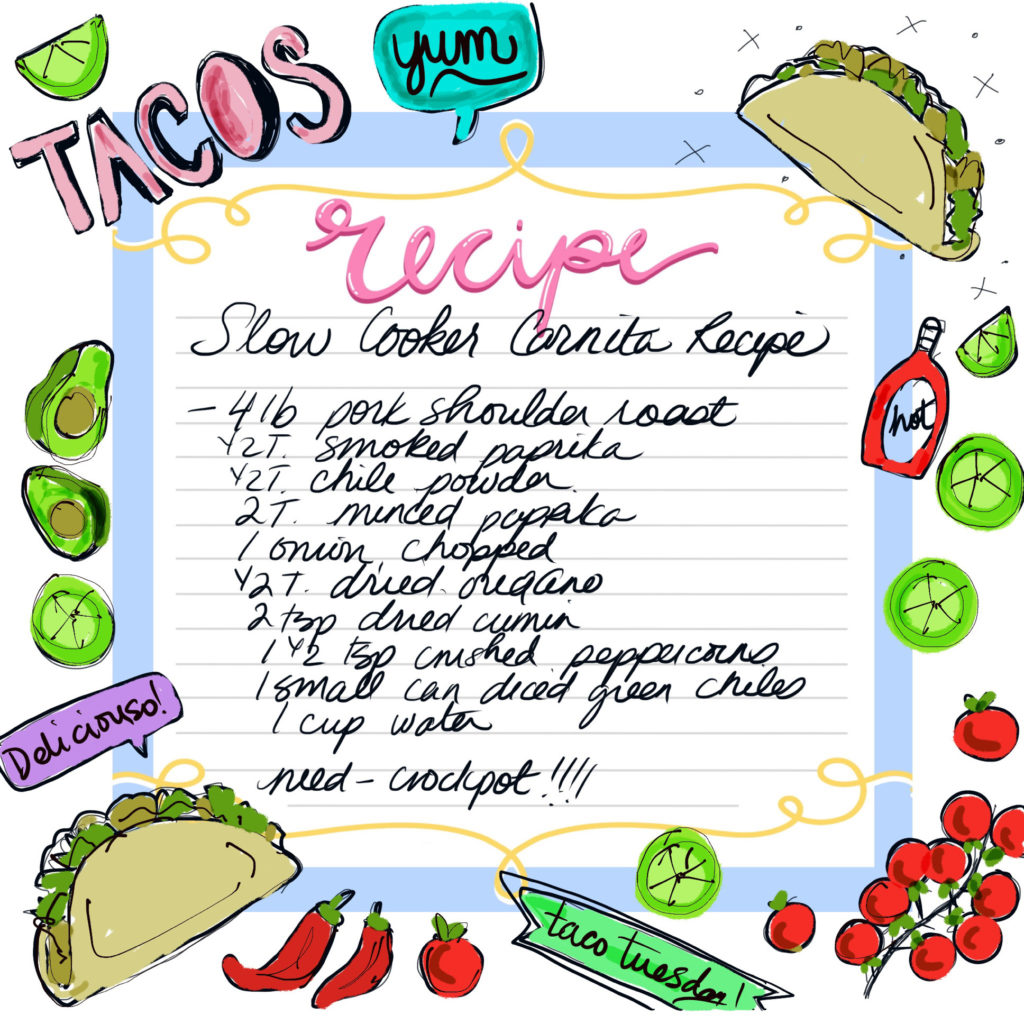 TACOS
yum
recipe
Slow Cooker Carnita Recipe
- 4 lb pork shoulder roast
1/2 T. smoked paprika
1/2 T. chile powder
2 T. minced paprika
1 onion, chopped
1/2 T. dried oregano
2 tsp dried cumin
1 1/2 tsp crushed peppercorns
1 small can diced green chiles
1 cup water
need - crockpot !!!!
hot
Deliciouso!
taco tuesday!